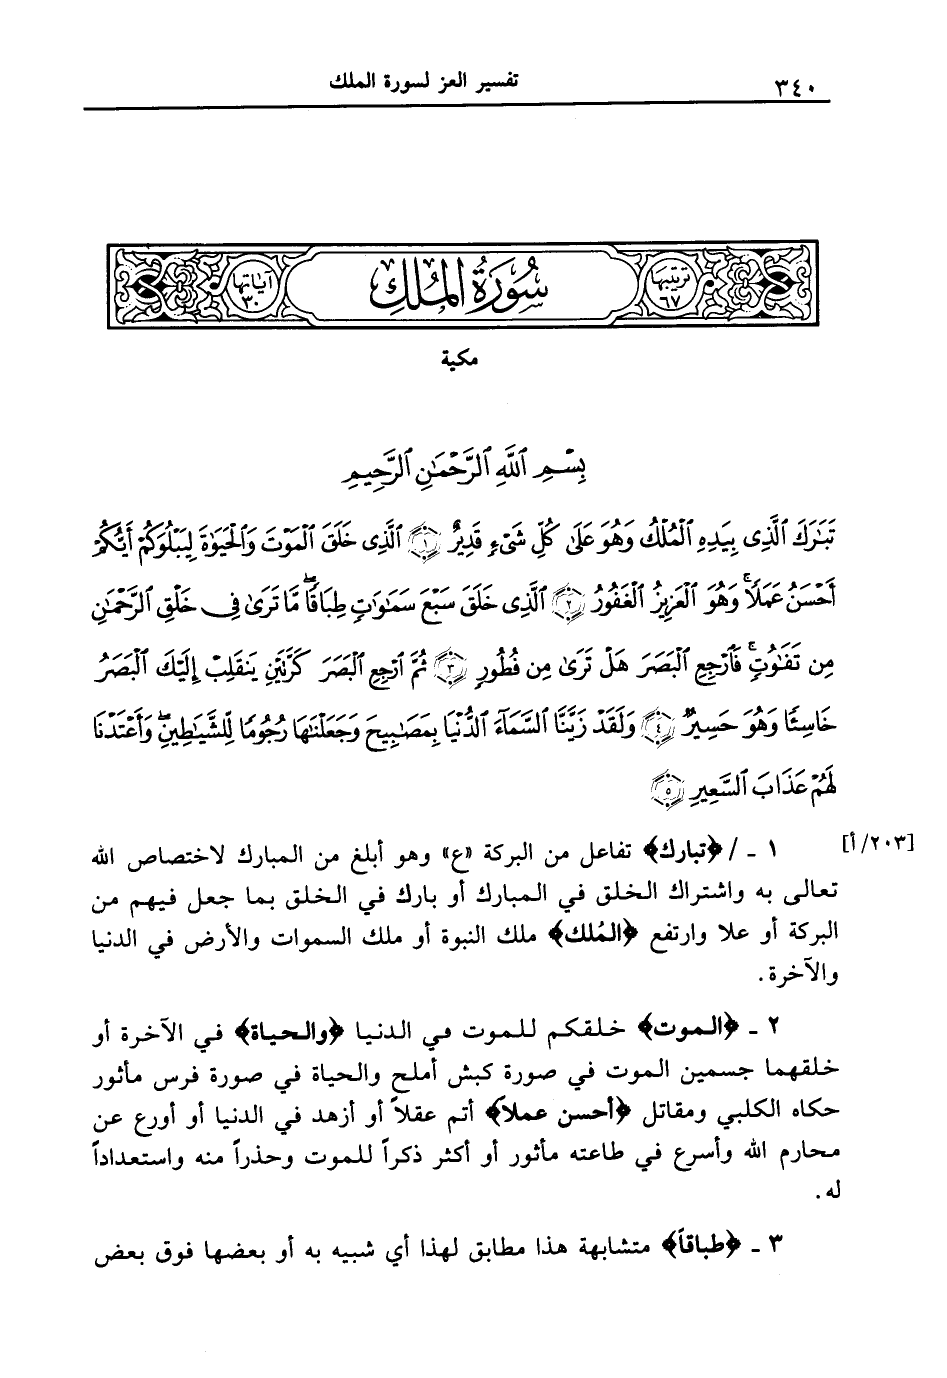 ٣٤٠ تفسير العز لسورة الملك
ترتيبها ٦٧ سُورَةُ المُلْكِ آياتها ٣٠
مكية
بِسْمِ ٱللَّهِ ٱلرَّحْمَٰنِ ٱلرَّحِيمِ
تَبَٰرَكَ ٱلَّذِى بِيَدِهِ ٱلْمُلْكُ وَهُوَ عَلَىٰ كُلِّ شَىْءٍ قَدِيرٌ ١ ٱلَّذِى خَلَقَ ٱلْمَوْتَ وَٱلْحَيَوٰةَ لِيَبْلُوَكُمْ أَيُّكُمْ
أَحْسَنُ عَمَلًا ۚ وَهُوَ ٱلْعَزِيزُ ٱلْغَفُورُ ٢ ٱلَّذِى خَلَقَ سَبْعَ سَمَٰوَٰتٍ طِبَاقًا ۖ مَّا تَرَىٰ فِى خَلْقِ ٱلرَّحْمَٰنِ
مِن تَفَٰوُتٍ ۖ فَٱرْجِعِ ٱلْبَصَرَ هَلْ تَرَىٰ مِن فُطُورٍ ٣ ثُمَّ ٱرْجِعِ ٱلْبَصَرَ كَرَّتَيْنِ يَنقَلِبْ إِلَيْكَ ٱلْبَصَرُ
خَاسِئًا وَهُوَ حَسِيرٌ ٤ وَلَقَدْ زَيَّنَّا ٱلسَّمَآءَ ٱلدُّنْيَا بِمَصَٰبِيحَ وَجَعَلْنَٰهَا رُجُومًا لِّلشَّيَٰطِينِ ۖ وَأَعْتَدْنَا
لَهُمْ عَذَابَ ٱلسَّعِيرِ ٥
[٢٠٣/أ] ١ ـ / ﴿تبارك﴾ تفاعل من البركة «ع» وهو أبلغ من المبارك لاختصاص الله
تعالى به واشتراك الخلق في المبارك أو بارك في الخلق بما جعل فيهم من
البركة أو علا وارتفع ﴿المُلك﴾ ملك النبوة أو ملك السموات والأرض في الدنيا
والآخرة.
٢ ـ ﴿الموت﴾ خلقكم للموت في الدنيا ﴿والحياة﴾ في الآخرة أو
خلقهما جسمين الموت في صورة كبش أملح والحياة في صورة فرس مأثور
حكاه الكلبي ومقاتل ﴿أحسن عملاً﴾ أتم عقلاً أو أزهد في الدنيا أو أورع عن
محارم الله وأسرع في طاعته مأثور أو أكثر ذكراً للموت وحذراً منه واستعداداً
له.
٣ ـ ﴿طباقاً﴾ متشابهة هذا مطابق لهذا أي شبيه به أو بعضها فوق بعض